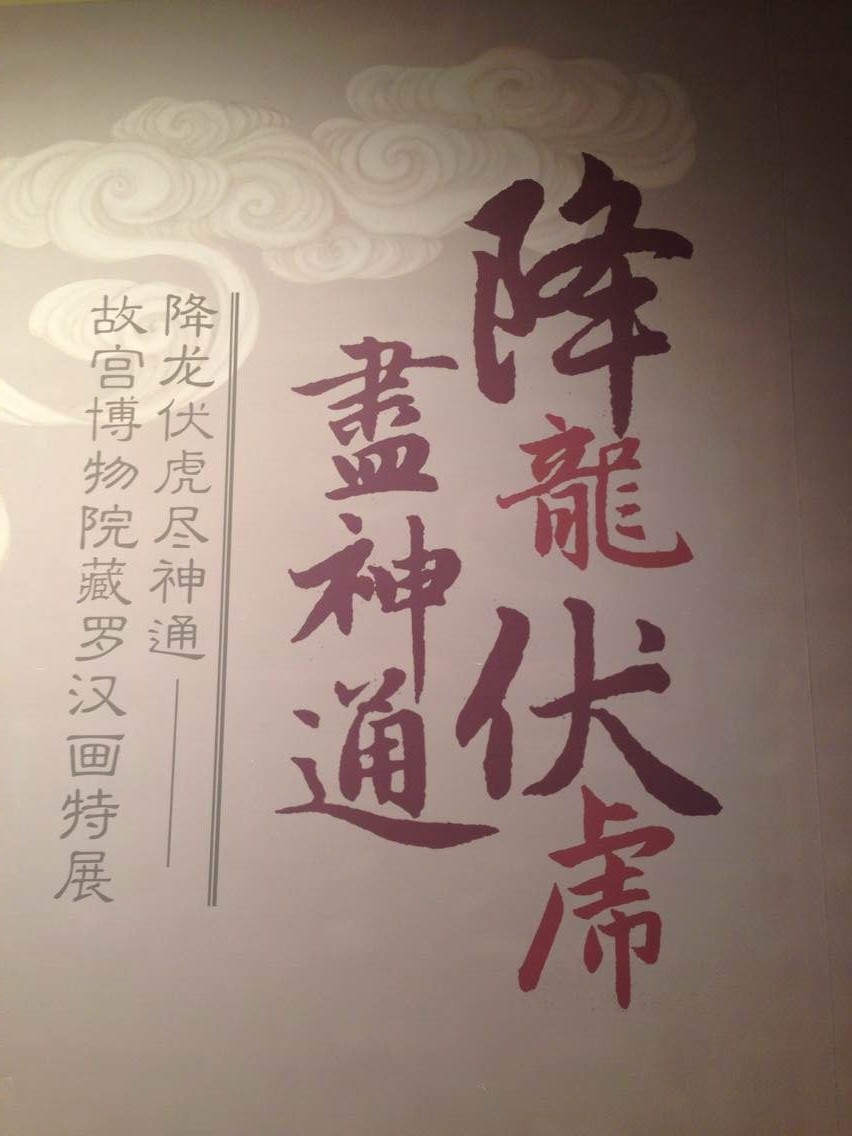 降龍伏虎
盡神通
降龙伏虎尽神通——
故宫博物院藏罗汉画特展